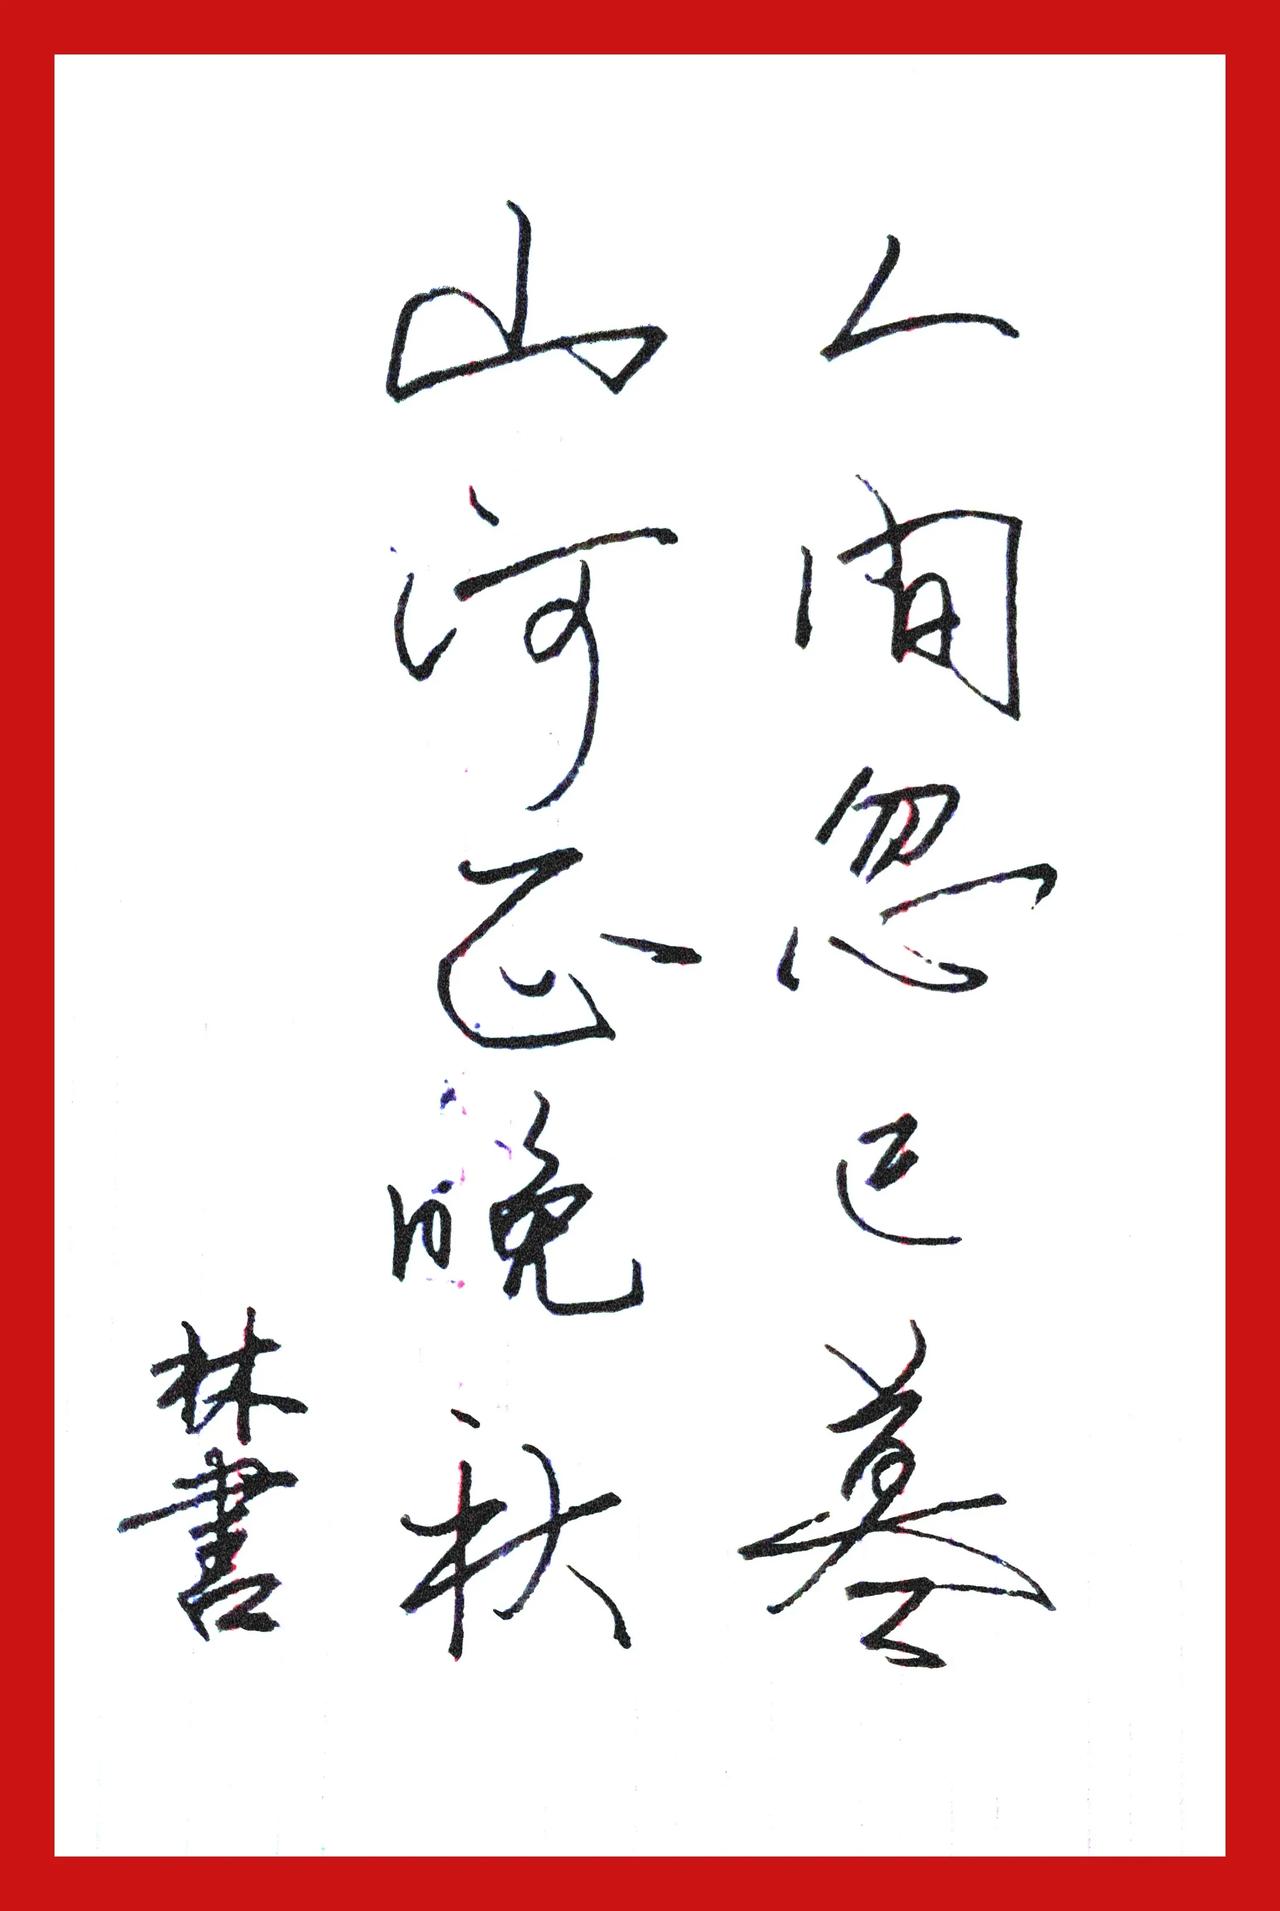 人间忽已暮
山河正晚秋
林書